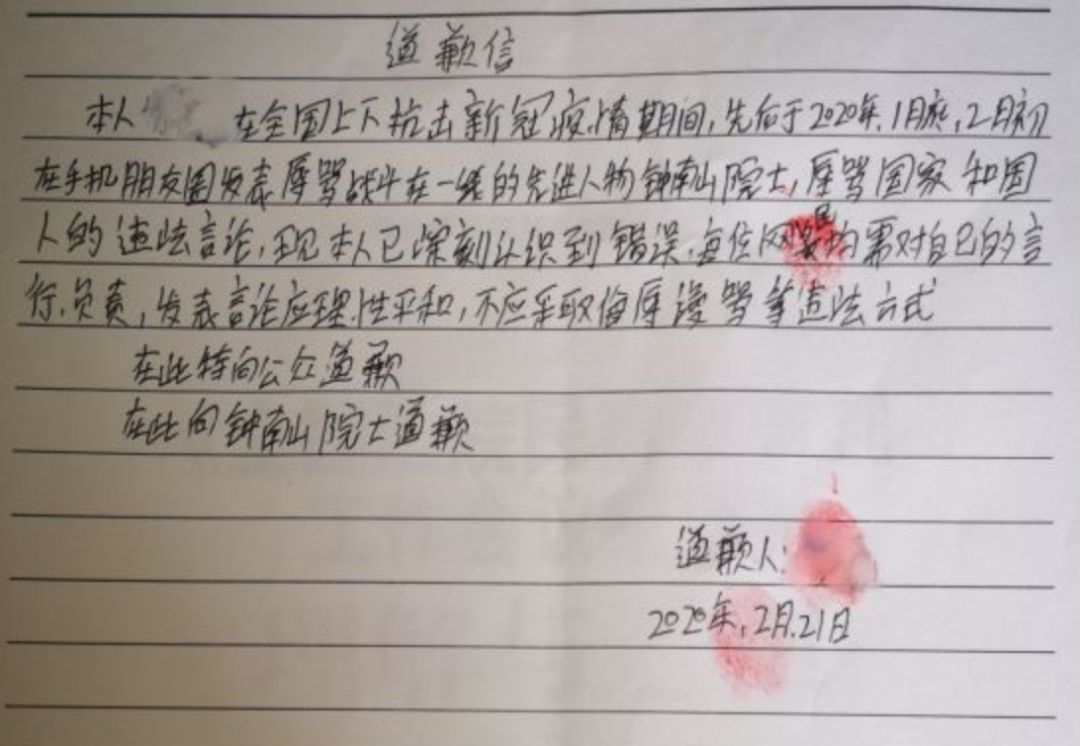 道歉信
本人 在全国上下抗击新冠疫情期间，先后于2020年.1月底，2月初
在手机朋友圈发表辱骂战斗在一线的先进人物钟南山院士，辱骂国家和国
人的违法言论，现本人已深刻认识到错误.每位网民均需对自己的言
行.负责，发表言论应理性平和，不应采取侮辱谩骂等违法方式
在此特向公众道歉
在此向钟南山院士道歉
道歉人：
2020年.2月.21日